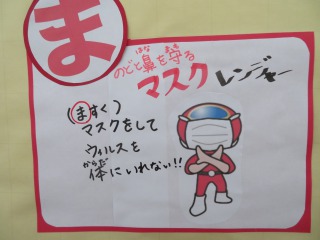 ま
のどと鼻を守る
はな まも
マスクレンジャー
(ますく)
マスクをして
ウィルスを
からだ
体にいれない!!